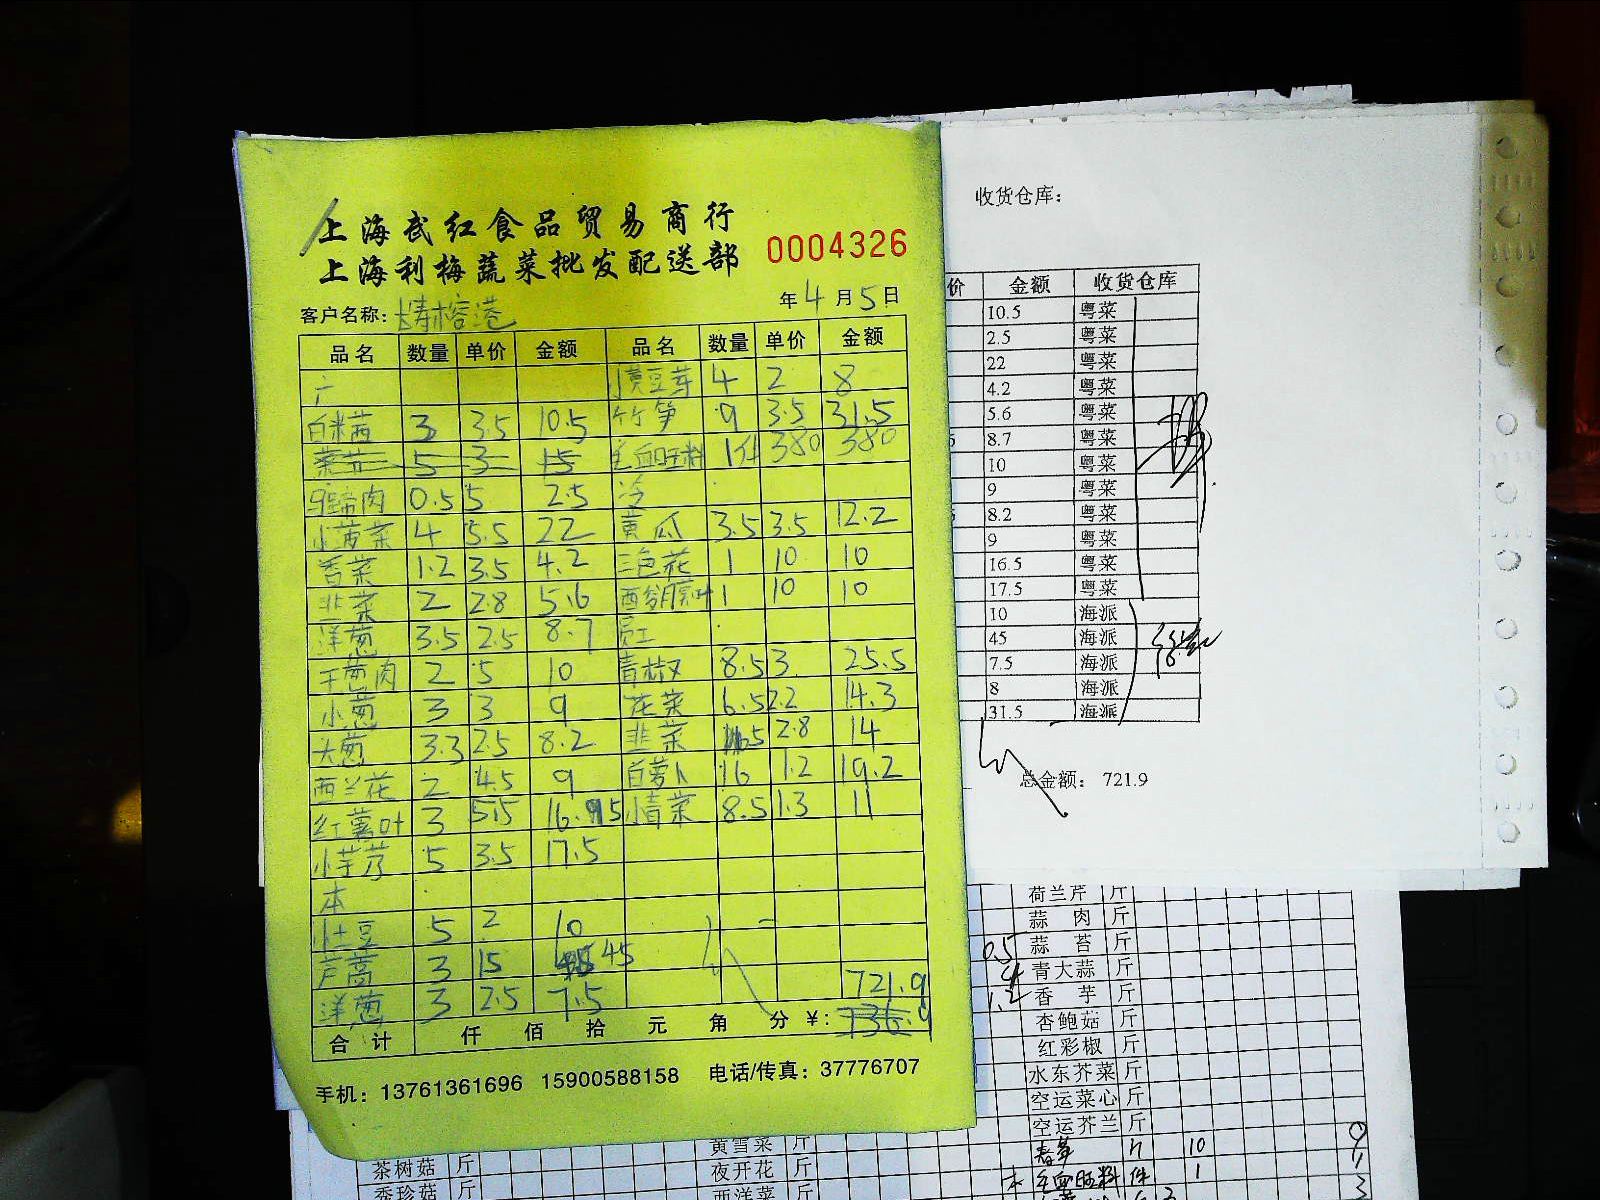 上海武红食品贸易商行
上海利梅蔬菜批发配送部
0004326
客户名称:
年 4 月 5 日
品名 数量 单价 金额 品名 数量 单价 金额
广 小黄豆芽 4 2 8
白米苋 3 3.5 10.5 竹笋 9 3.5 31.5
5 3 15 毛血旺料 1件 380 380
马蹄肉 0.5 5 2.5 冷
小菠菜 4 5.5 22 黄瓜 3.5 3.5 12.2
香菜 1.2 3.5 4.2 三色花 1 10 10
韭菜 2 2.8 5.6 1 10 10
洋葱 3.5 2.5 8.7 员工
干葱肉 2 5 10 青椒 8.5 3 25.5
小葱 3 3 9 花菜 6.5 2.2 14.3
大葱 3.3 2.5 8.2 韭菜 5 2.8 14
西兰花 2 4.5 9 白萝卜 16 1.2 19.2
红薯叶 3 5.5 16.5 小青菜 8.5 1.3 11
小芋艿 5 3.5 17.5
本
土豆 5 2 10
芦蒿 3 15 45
洋葱 3 2.5 7.5 721.9
合计 仟 佰 拾 元 角 分 ¥: 736.9
手机: 13761361696 15900588158 电话/传真: 37776707
收货仓库:
价 金额 收货仓库
10.5 粤菜
2.5 粤菜
22 粤菜
4.2 粤菜
5.6 粤菜
8.7 粤菜
10 粤菜
9 粤菜
8.2 粤菜
9 粤菜
16.5 粤菜
17.5 粤菜
10 海派
45 海派
7.5 海派
8 海派
31.5 海派
总金额: 721.9
荷兰芹 斤
蒜肉 斤
0.5 蒜苔 斤
4 青大蒜 斤
1.2 香芋 斤
杏鲍菇 斤
红彩椒 斤
水东芥菜 斤
空运菜心 斤
空运芥兰 斤
黄雪菜 斤 春笋 斤 10
茶树菇 斤 夜开花 斤 本 毛血旺料 件 1
秀珍菇 斤 西洋菜 斤